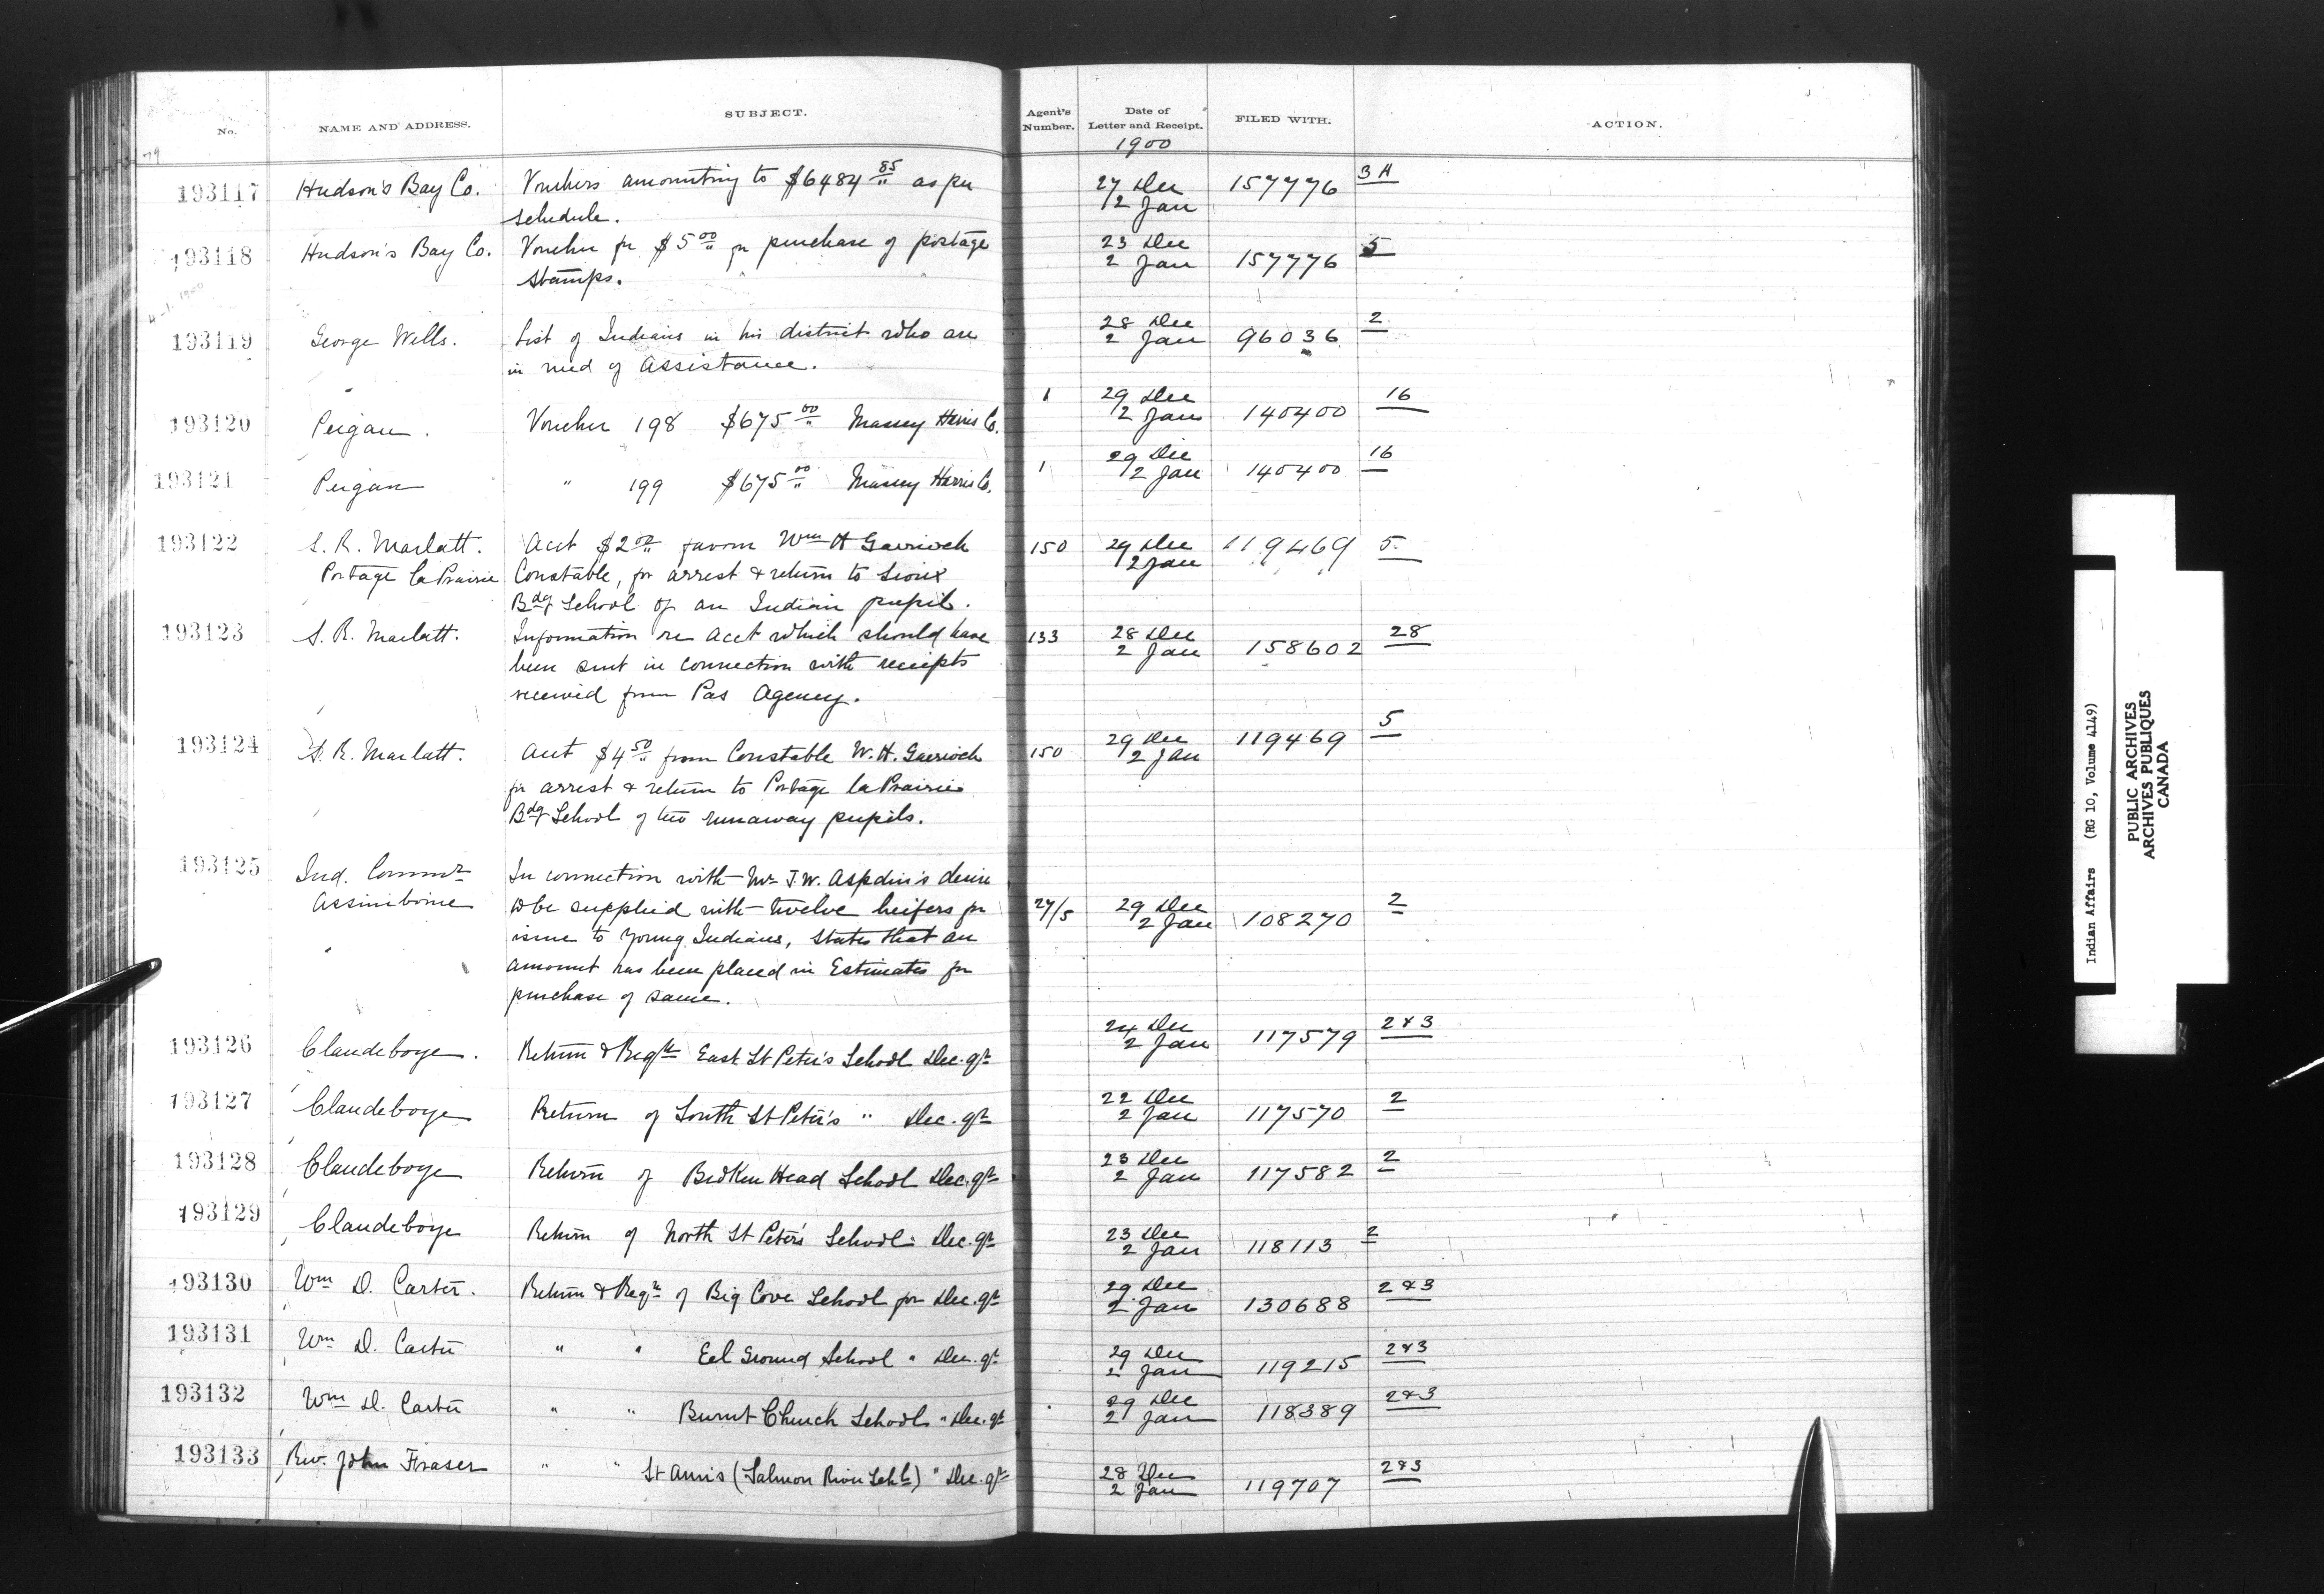 No. NAME AND ADDRESS. SUBJECT. Agent's Number. Date of Letter and Receipt. FILED WITH. ACTION.
1900
193117 Hudson's Bay Co. Vouchers amounting to $6484 85 as per 27 Dec 157776 3A
schedule. 2 Jan
193118 Hudson's Bay Co. Voucher for $5 00 for purchase of postage 23 Dec 157776 5
stamps. 2 Jan
193119 George Wells. List of Indians in his district who are 28 Dec 96036 2
in need of Assistance. 2 Jan
193120 Peigan. Voucher 198 $675 00 Massey Harris Co. 1 29 Dec 140400 16
2 Jan
193121 Peigan " 199 $675 00 Massey Harris Co. 1 29 Dec 140400 16
2 Jan
193122 S. R. Marlatt. Acct $2 00 favour Wm H Garrioch 150 29 Dec 119469 5
Portage la Prairie Constable, for arrest & return to Sioux 2 Jan
Bdg School of an Indian pupil.
193123 S. R. Marlatt. Information re Acct which should have 133 28 Dec 158602 28
been sent in connection with receipts 2 Jan
received from Pas Agency.
193124 S. R. Marlatt. Acct $4 50 from Constable W. H. Garrioch 150 29 Dec 119469 5
for arrest & return to Portage la Prairie 2 Jan
Bdg School of two runaway pupils.
193125 Ind. Commr In connection with Mr T.W. Aspdin's desire
Assiniboine to be supplied with twelve heifers for 27/5 29 Dec 108270 2
issue to Young Indians, states that an 2 Jan
amount has been placed in Estimates for
purchase of same.
193126 Clandeboye. Return & Reqte East St Peter's School Dec. qr 24 Dec 117579 2&3
2 Jan
193127 Clandeboye Return of South St Peter's " Dec. qr 22 Dec 117570 2
2 Jan
193128 Clandeboye Return of Broken Head School Dec. qr 23 Dec 117582 2
2 Jan
193129 Clandeboye Return of North St Peter's School Dec. qr 23 Dec 118113 2
2 Jan
193130 Wm D. Carter. Return & Reqte of Big Cove School for Dec. qr 29 Dec 130688 2&3
2 Jan
193131 Wm D. Carter " " Eel Ground School " Dec. qr 29 Dec 119215 2&3
2 Jan
193132 Wm D. Carter " " Burnt Church School " Dec. qr 29 Dec 118389 2&3
2 Jan
193133 Rev. John Fraser " " St Ann's (Salmon River Schl) " Dec. qr 28 Dec 119707 2&3
2 Jan
Indian Affairs (RG 10, Volume 4149)
PUBLIC ARCHIVES
ARCHIVES PUBLIQUES
CANADA